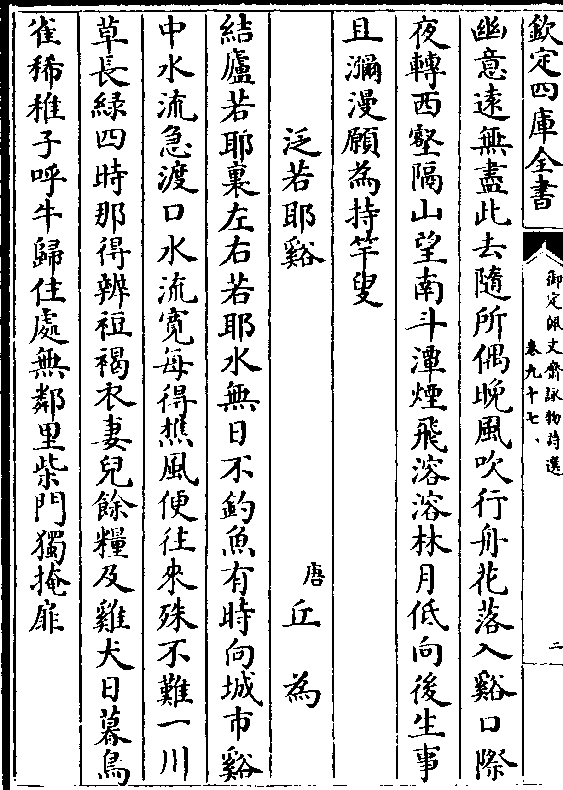 欽定四庫全書
御定佩文齋詠物詩選
卷九十七
二
幽意遠無盡此去隨所偶晚風吹行舟花落入谿口際
夜轉西壑隔山望南斗潭煙飛溶溶林月低向後生事
且瀰漫願為持竿叟
泛若耶谿
唐 丘為
結廬若耶裏左右若耶水無日不釣魚有時向城市谿
中水流急渡口水流寛每得樵風便往來殊不難一川
草長綠四時那得辨裋褐衣妻兒餘糧及雞犬日暮鳥
雀稀稚子呼牛歸住處無鄰里柴門獨掩扉